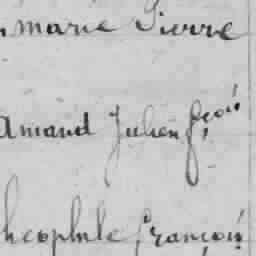 marie Pierre
Amand Julien fçois
heophile françois